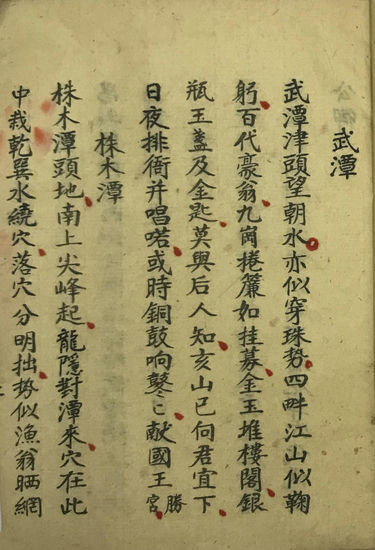 武潭
武潭津頭望朝水亦似穿珠势四畔江山似鞠
躬百代豪翁九崗捲簾如挂募金玉堆樓閣銀
瓶玉盞及金匙莫與后人知亥山巳向君宜下
日夜排衙并唱喏或時銅鼓响鼕〻献國王勝宮
株木潭
株木潭頭地南上尖峰起龍隱對潭来穴在此
中栽乾巽水繞穴落穴分明拙势似漁翁晒網